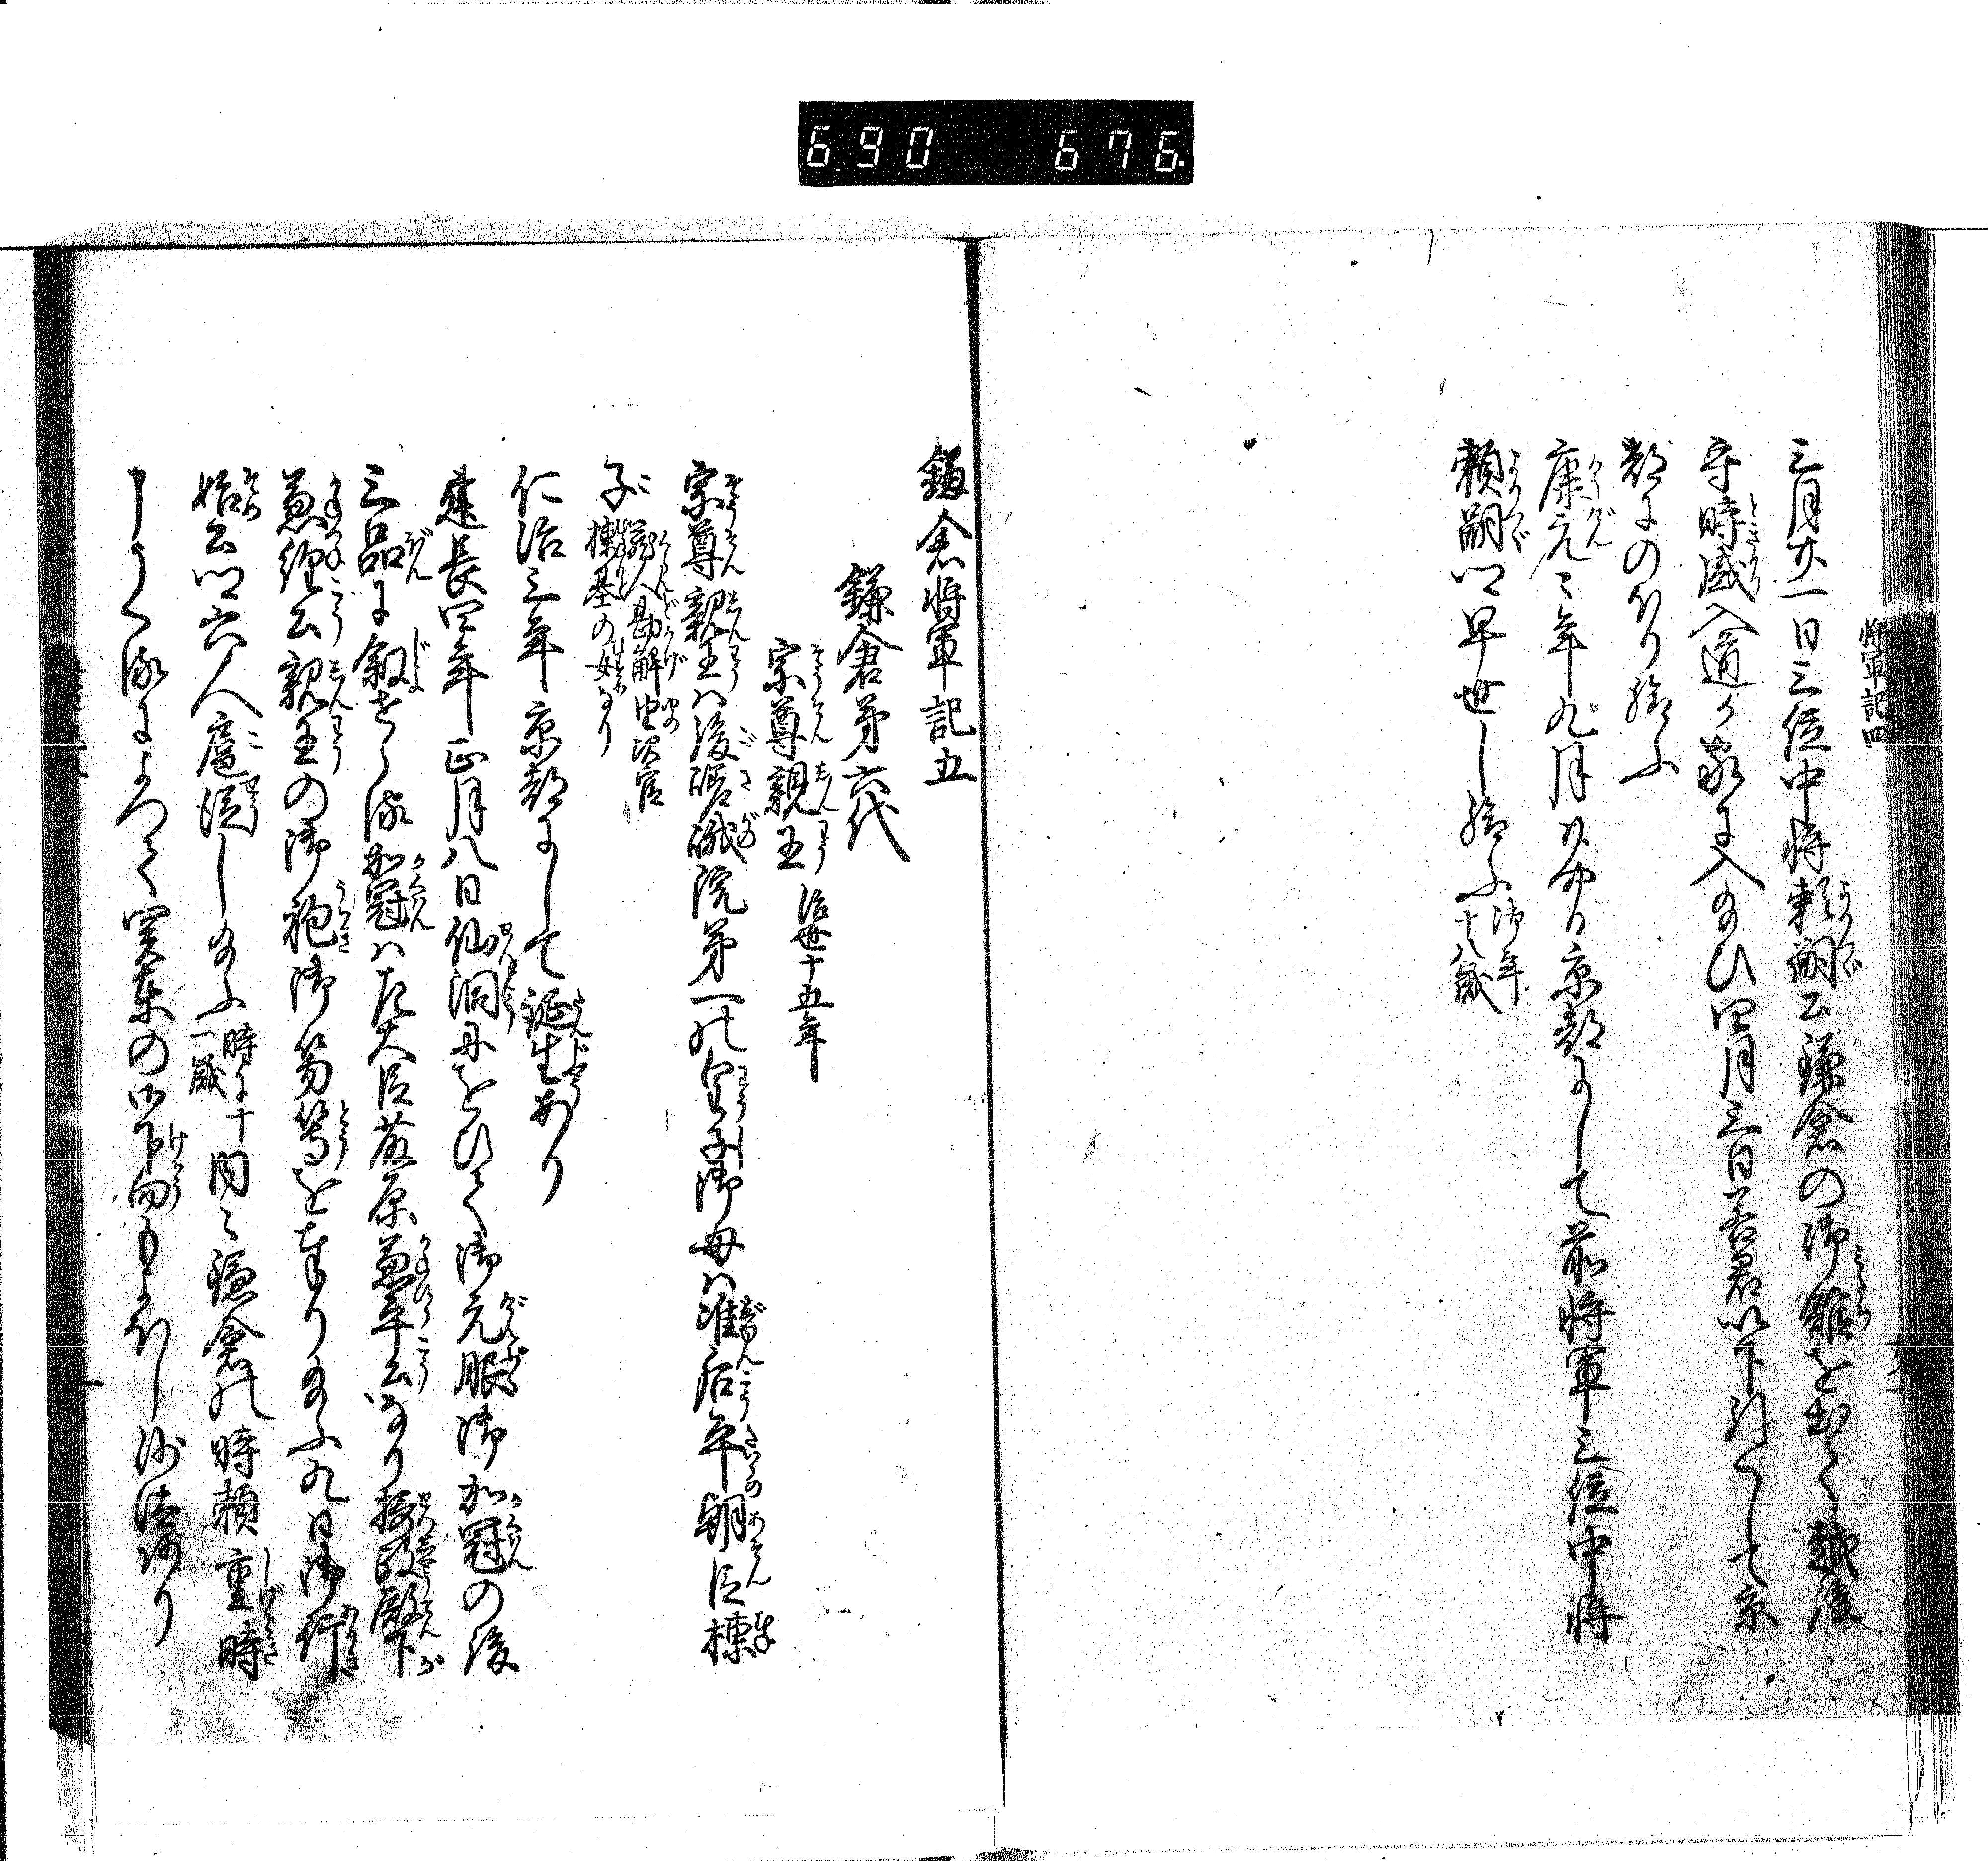 690 676
将軍記四
三月廿一日三位中将頼嗣公鎌倉の御館を出て越後
守時盛入道が家に入給ひ四月三日若君以下引ぐして京
都にのぼり給ふ
康元々年九月廿五日京都にして前将軍三位中将
頼嗣公早世し給ふ御年十八歳
鎌倉将軍記五
鎌倉第六代
宗尊親王 治世十五年
宗尊親王ハ後嵯峨院第一の皇子御母ハ准后平朝臣棟
子蔵人勘解由次官棟基の女なり
仁治三年京都にして誕生あり
建長四年正月八日仙洞にをひて御元服御加冠の後
三品に叙せらる加冠ハ左大臣藤原兼平公なり摂政殿下
兼経公親王の御袍御笏等をたまり給ふ九日御行
始公卿六人扈従し給ふ時に十一歳同く鎌倉の時頼重時
申しくるによつて関東の御下向もよほし沙法あり